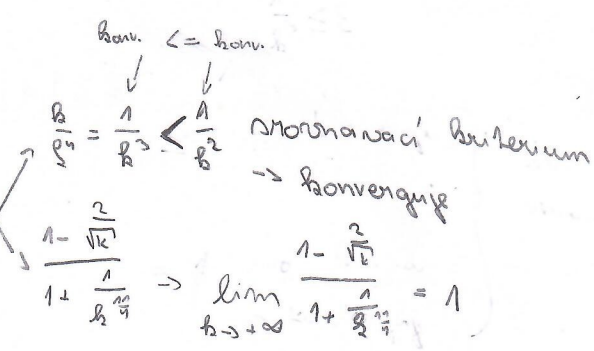 konv. <= konv.
k/k⁴ = 1/k³ < 1/k² srovnavací kriterium
-> konverguje
(1 - 2/√k)/(1 + 1/k^(11/4)) -> lim k->+∞ (1 - 2/√k)/(1 + 1/k^(11/4)) = 1